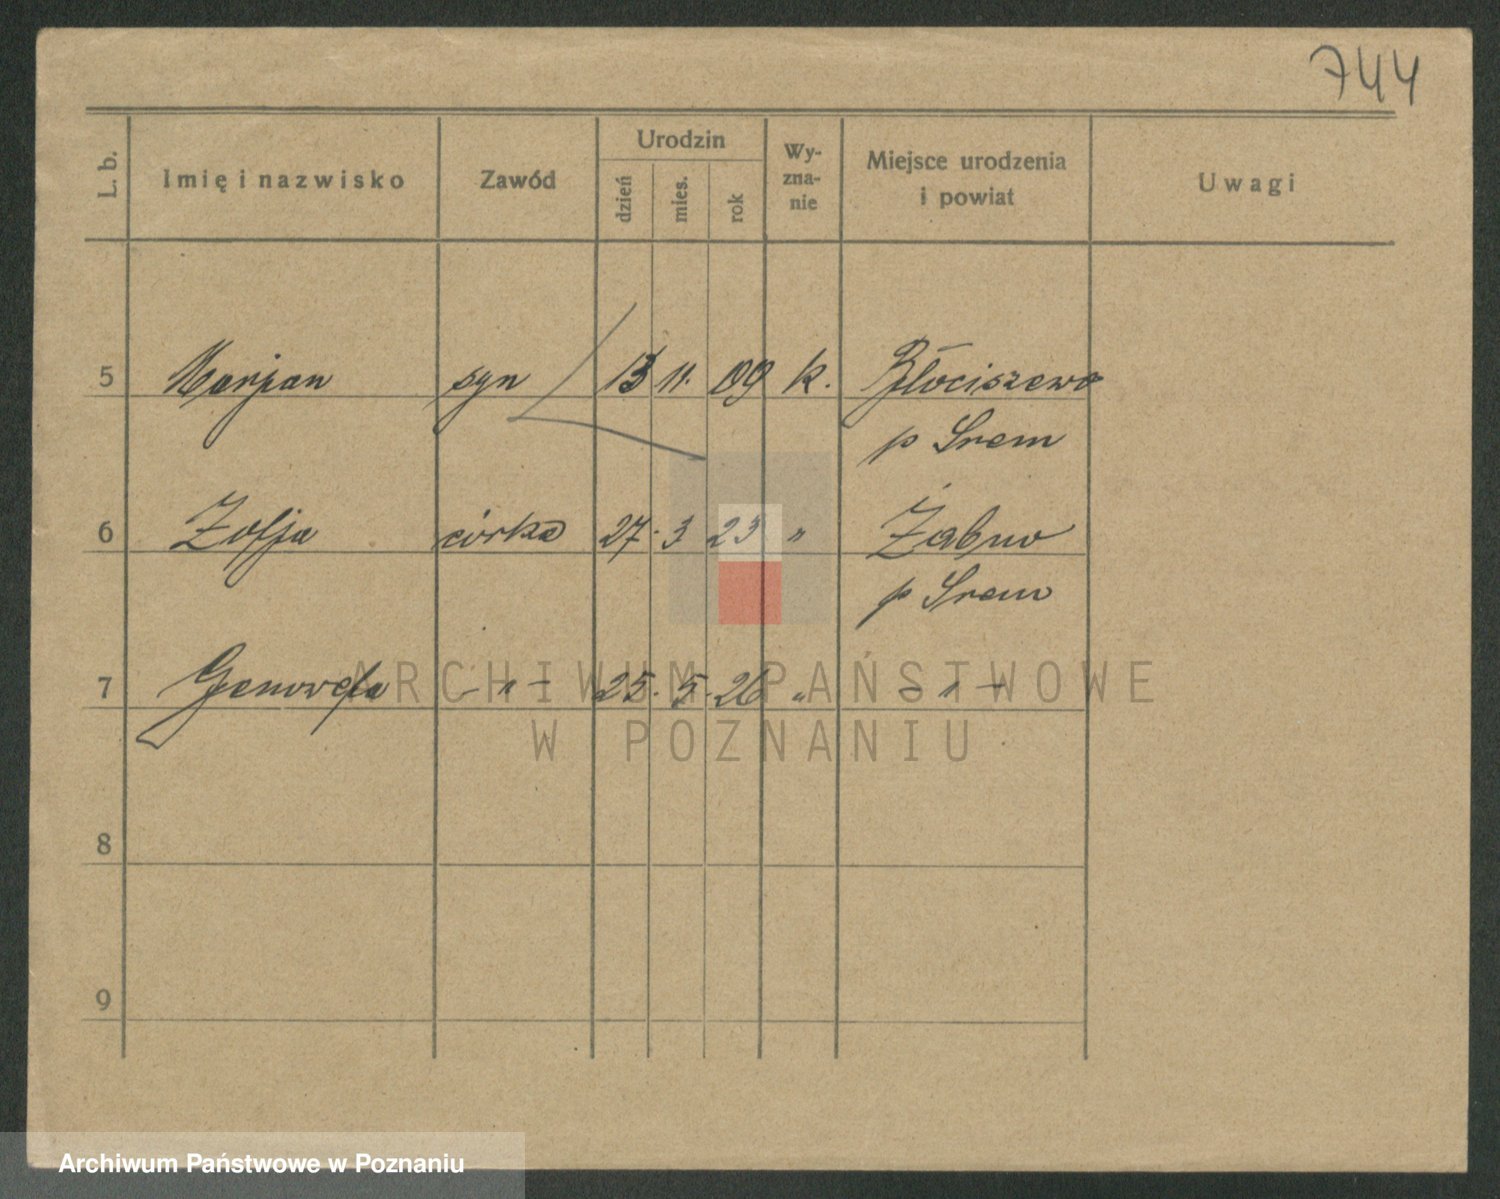 744
L. b.
Imię i nazwisko
Zawód
Urodzin
dzień
mies.
rok
Wy-
zna-
nie
Miejsce urodzenia
i powiat
Uwagi
5 Marjan syn 13 11. 09 k. Błociszewo
p Śrem
6 Zofja córka 27. 3 23 " Żabno
p Śrem
7 Genowefa - " - 25. 5. 26 " - " -
8
9
ARCHIWUM PAŃSTWOWE
W POZNANIU
Archiwum Państwowe w Poznaniu